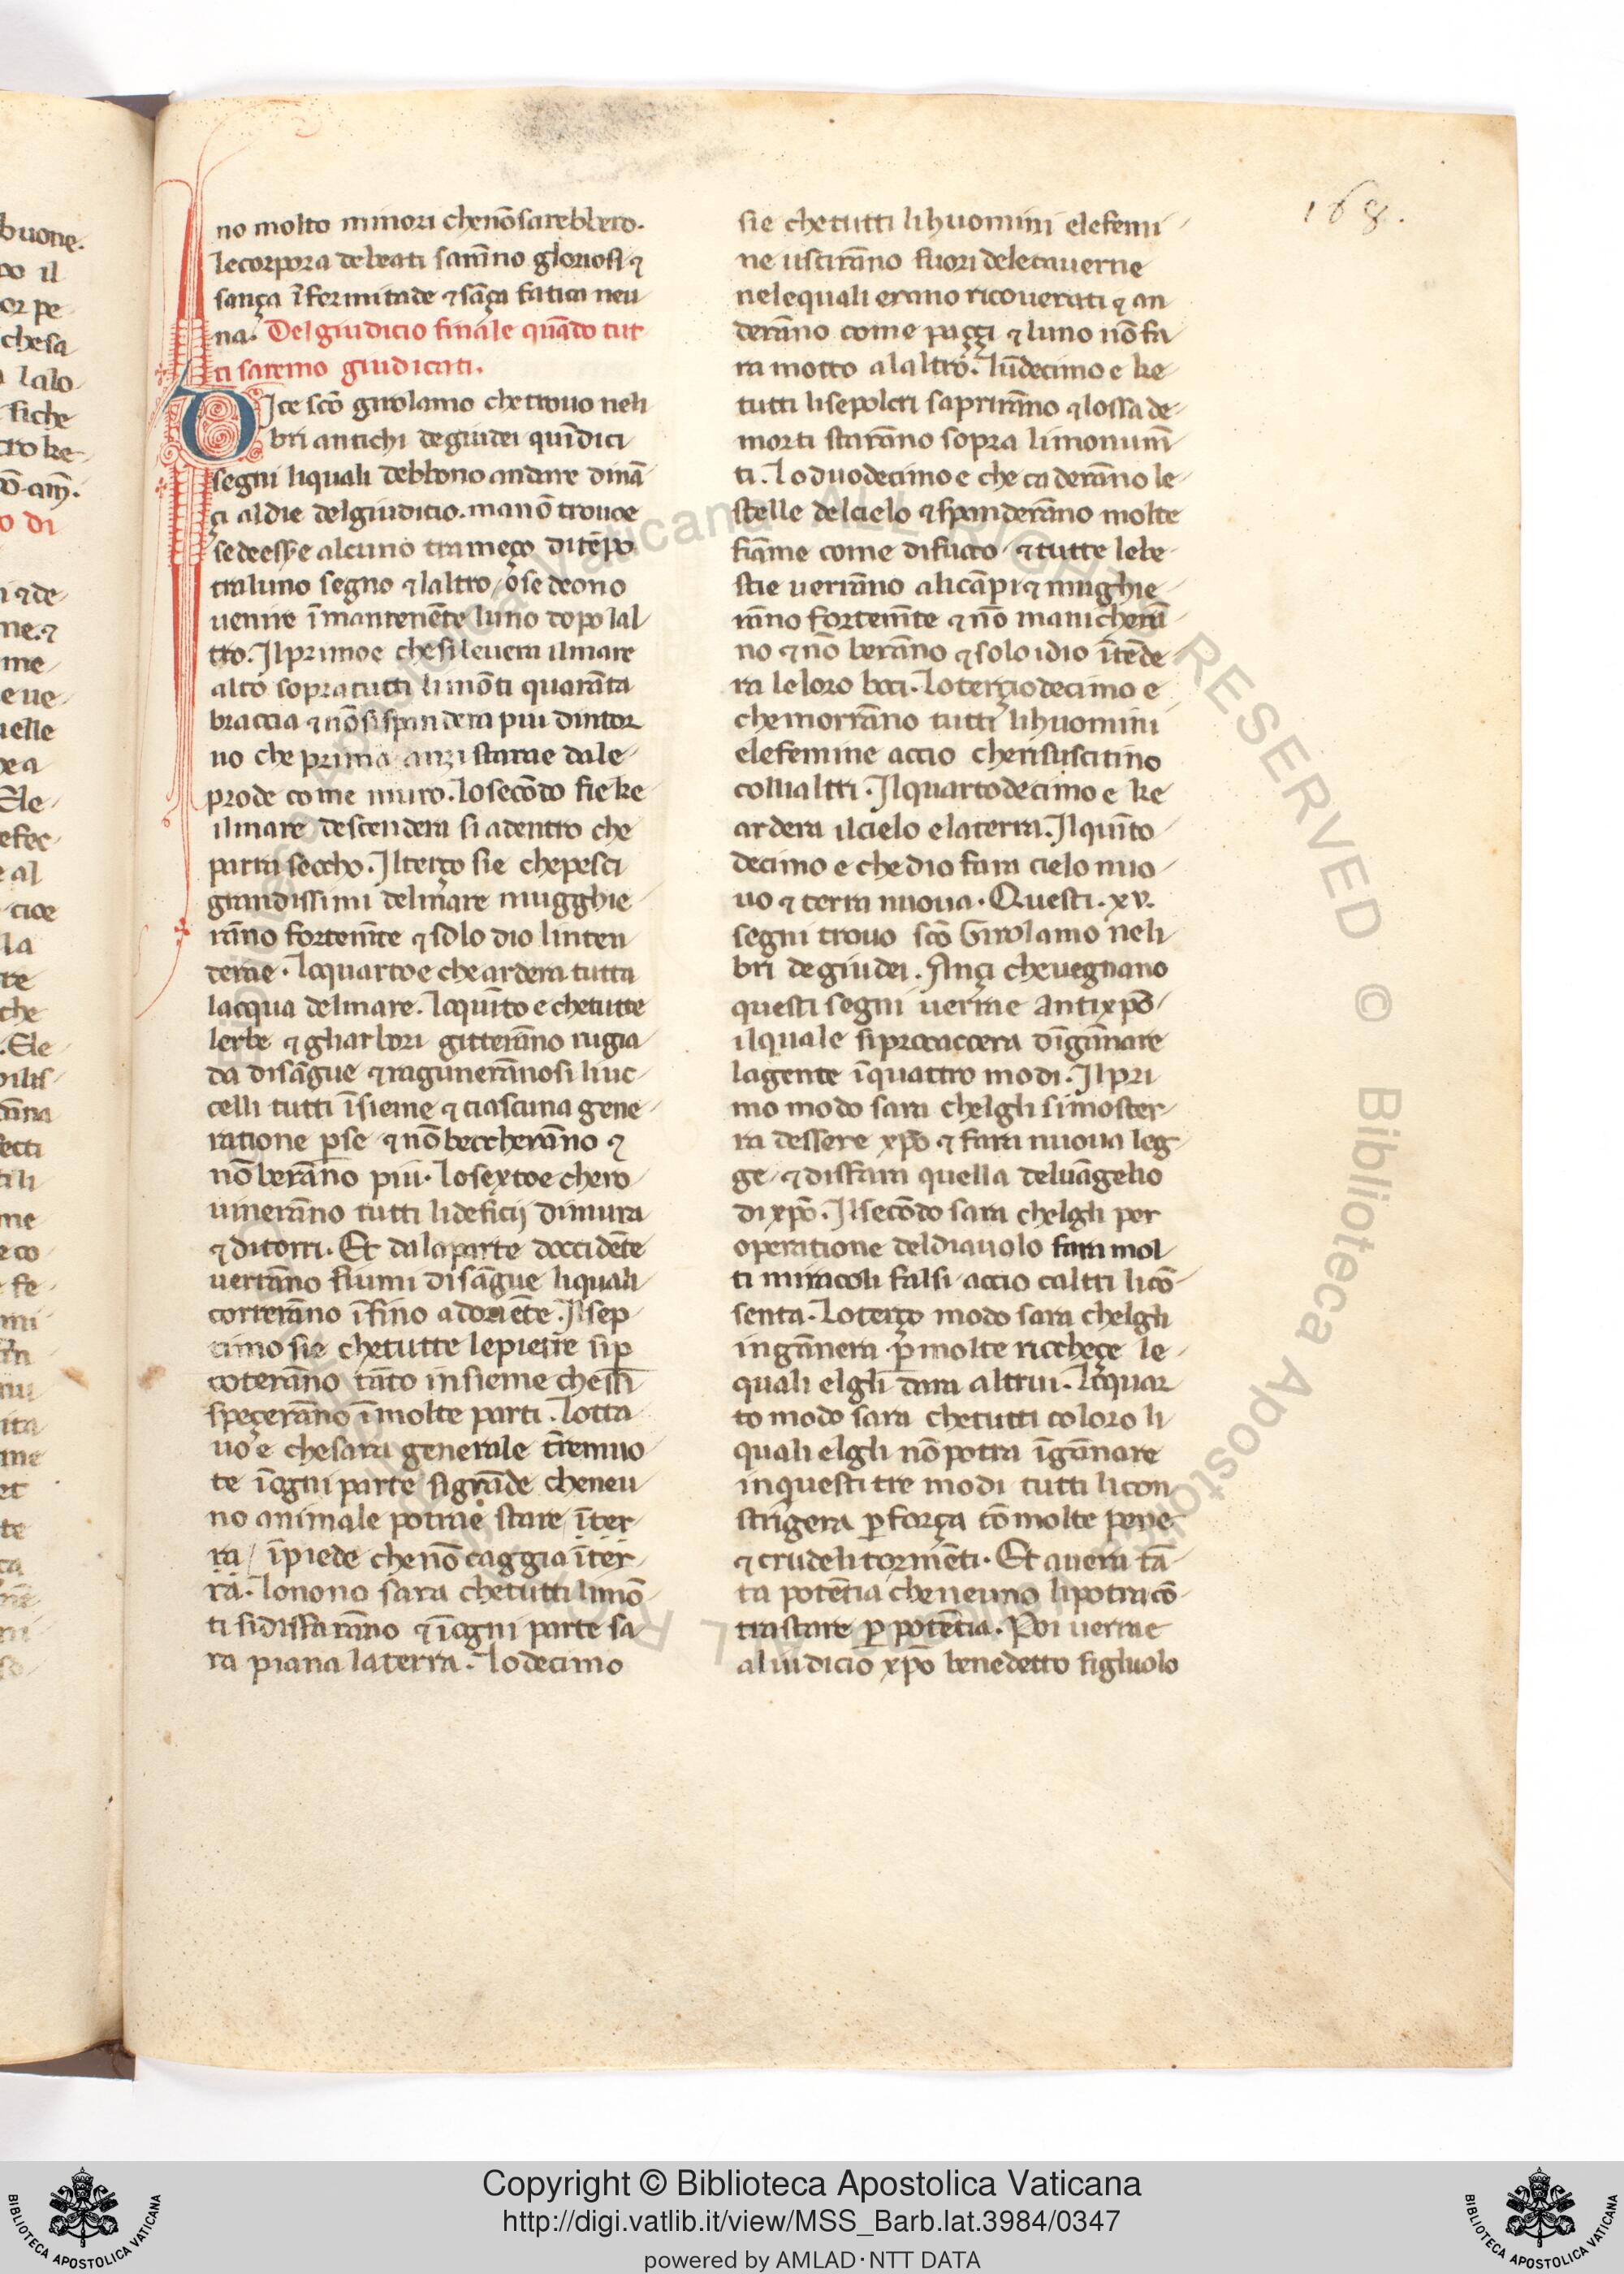 168.
no molto minori che nō sarebbero.
Le corpora de beati sarāno gloriosi ⁊
sança īfermitade ⁊ sāça fatica neu
na. Del giudicio finale quādo tut
ti saremo giudicati.
DIce scō girolamo che trouo neli
bri antichi de giudei quīdici
segni li quali debbono andare dinā
çi al die del giudicio. ma nō trouoe
se dee esse alcuno trameço di tēpo
tra luno segno ⁊ laltro / o se deono
uenire īmantenēte luno dopo lal
tro. Il primo e che si leuera il mare
alto sopra tutti li mōti quarāta
braccia ⁊ nō si spandera piu dintor
no che prima anzi starae da le
prode come muro. Lo secōdo fie ke
il mare descendera si adentro che
parra seccho. Il terço sie che pesci
grandissimi del mare mugghie
rāno fortemēte ⁊ solo dio linten
derae. Lo quarto e che ardera tutta
lacqua del mare. Lo quīto e che tutte
lerbe ⁊ gharbori gitterāno rugia
da di sāgue ⁊ raguneranōsi li uc
celli tutti īsieme ⁊ ciascuna gene
ratione p se ⁊ nō beccherāno ⁊
nō berāno piu. Lo sexto e che ro
uinerāno tutti li deficij di mura
⁊ di torri. Et da la parte doccidēte
uerrāno fiumi di sāgue li quali
correrāno īfino ad oriēte. Il sep
timo sie che tutte le pietre si p
coterāno tāto insieme che si
speçerāno ī molte parti. Lotta
uo e che sara generale tremuo
te ī ogni parte si grāde che neu
no animale potrae stare ī ter
ra / ī piede che nō caggia ī ter
ra. Lo nono sara che tutti li mō
ti si disfarāno ⁊ ī ogni parte sa
ra piana la terra. Lo decimo
sie che tutti li huomini e le femi
ne uscirāno fuori dele cauerne
nele quali erano ricouerati ⁊ an
derāno come paççi ⁊ luno nō fa
ra motto alaltro. Lūdecimo e ke
tutti li sepolcri saprirāno ⁊ lossa de
morti starāno sopra li monum̄
ti. Lo duodecimo e che caderāno le
stelle del cielo ⁊ spanderāno molte
fiāme come di fuoco / ⁊ tutte le be
stie uerrāno ali cāpi ⁊ mughie
rāno fortemēte ⁊ nō manicherā
no ⁊ nō berāno ⁊ solo idio ītēde
ra le loro boci. Lo terçiodecimo e
che morrāno tutti li huomini
e le femine accio che risuscitino
coll altri. Il quartodecimo e ke
ardera il cielo e la terra. Il quīto
decimo e che dio fara cielo nuo
uo ⁊ terra nuoua. Questi .xv.
segni trouo scō Girolamo neli
bri de giudei. Ançi che uegnano
questi segni uerrae Antixp̄o
il quale si procaccera dīgānare
la gente ī quattro modi. Il pri
mo modo sara chelgli si moster
ra dessere xp̄o ⁊ fara nuoua leg
ge / ⁊ disfara quella del uāgelio
di xp̄o. Il secōdo sara chelgli per
operatione del diauolo fara mol
ti miracoli falsi / accio caltri li cō
senta. Lo terço modo sara chelgli
ingānera p molte riccheçe le
quali elgli dara altrui. Lo quar
to modo sara che tutti coloro li
quali elgli nō potra īgānare
in questi tre modi tutti li con
strigera p força cō molte pene
⁊ crudeli tormēti. Et auera tā
ta potētia che neuno li potra cō
trastare p potētia. Poi uerrae
al iudicio xp̄o benedetto figluolo
Copyright © Biblioteca Apostolica Vaticana
http://digi.vatlib.it/view/MSS_Barb.lat.3984/0347
powered by AMLAD·NTT DATA